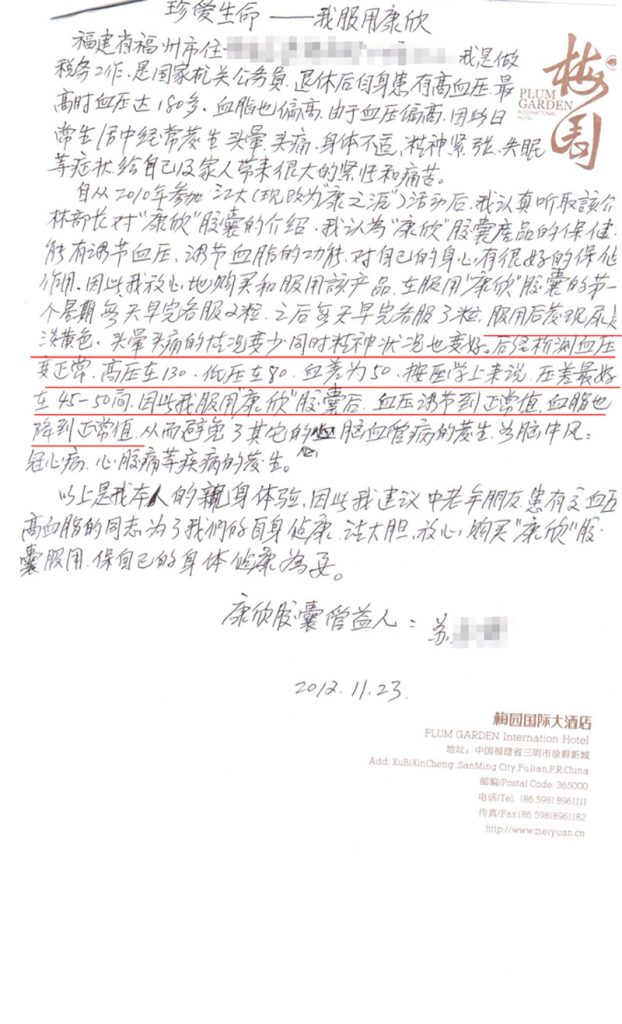 珍爱生命——我服用康欣
梅园
PLUM GARDEN
INTERNATIONAL HOTEL
福建省福州市住 我是做
税务工作,是国家机关公务员,退休后自身患有高血压,最
高时血压达180多,血脂也偏高,由于血压偏高,因此日
常生活中经常发生头晕、头痛,身体不适,精神紧张、失眠
等症状给自己及家人带来很大的紧忙和痛苦。
自从2010年参加江大(现改为"康之源")活动后,我认真听取該介
林部长对"康欣"胶囊的介绍,我认为"康欣"胶囊産品的保健
能有调节血压、调节血脂的功能,对自己的身心有很好的保健
作用,因此我放心地购买和服用該产品,在服用"康欣"胶囊的第一
个星期每天早完各服2粒,之后每天早完各服了粒,服用后发现尿是
淡黄色,头晕头痛的情况变少同时精神状况也变好。后经检测血压
变正常,高压在130,低压在80,血差为50,按医学上来说,压差最好
在45-50间,因此我服用"康欣"胶囊后,血压调节到正常值,血脂也
降到正常值,从而避免了其它的心脑血管病的发生,如脑中风;
冠心病、心脏病等疾病的发生。
以上是我本人的親身体验,因此我建议中老年朋友患有高血压
高血脂的同志为了我们的自身健康,请大胆、放心、购买"康欣"胶
囊服用,保自己的身体健康為妥。
康欣胶囊受益人:苏
2012.11.23.
梅园国际大酒店
PLUM GARDEN Internation Hotel
地址:中国福建省三明市徐碧新城
Add: XuBiXinCheng ,SanMing City,Fujian,P.R.China
邮编/Postal Code: 365000
电话/Tel: (86 598) 8961111
传真/Fax:(86 598)8961182
http://www.meiyuan.cn